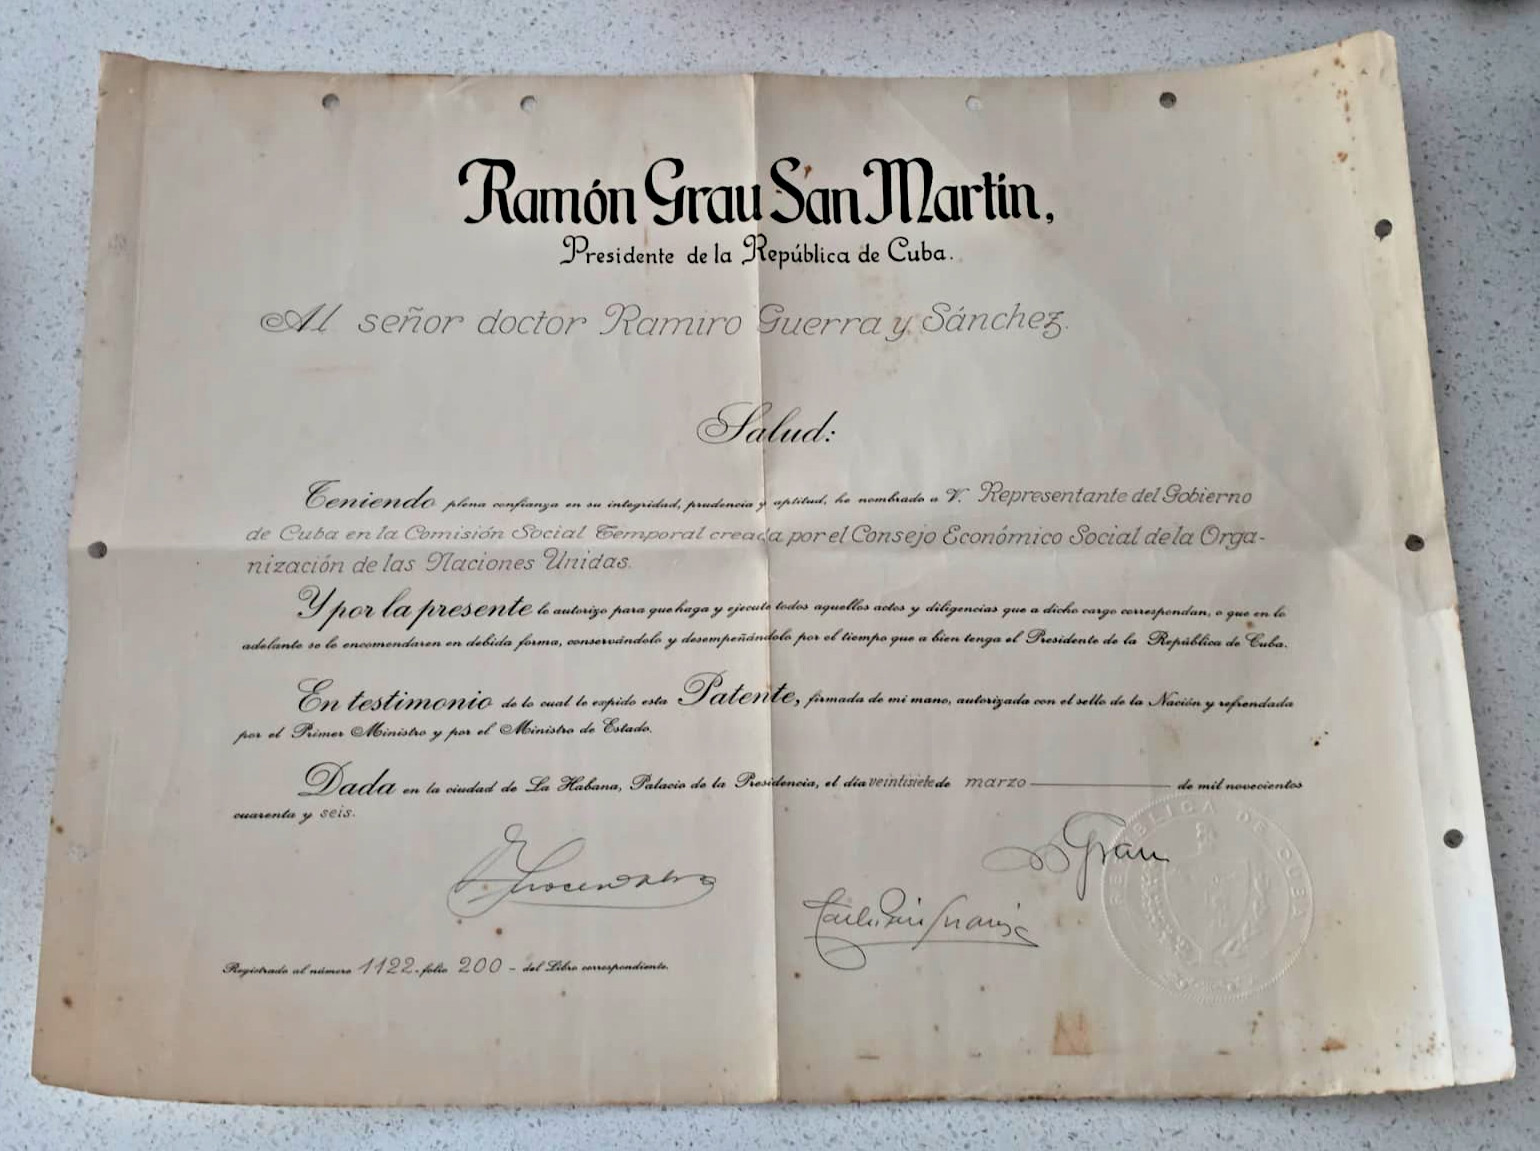 Ramón Grau San Martín,
Presidente de la República de Cuba.
Al señor doctor Ramiro Guerra y Sánchez.
Salud:
Teniendo plena confianza en su integridad, prudencia y aptitud, he nombrado a V. Representante del Gobierno
de Cuba en la Comisión Social Temporal creada por el Consejo Económico Social de la Orga-
nización de las Naciones Unidas.
Y por la presente le autorizo para que haga y ejecute todos aquellos actos y diligencias que a dicho cargo correspondan, o que en lo
adelante se le encomendaren en debida forma, conservándolo y desempeñándolo por el tiempo que a bien tenga el Presidente de la República de Cuba.
En testimonio de lo cual le expido esta Patente, firmada de mi mano, autorizada con el sello de la Nación y refrendada
por el Primer Ministro y por el Ministro de Estado.
Dada en la ciudad de La Habana, Palacio de la Presidencia, el día veintisiete de marzo de mil novecientos
cuarenta y seis.
Grau
REPÚBLICA DE CUBA
Registrado al número 1122. folio 200 - del Libro correspondiente.